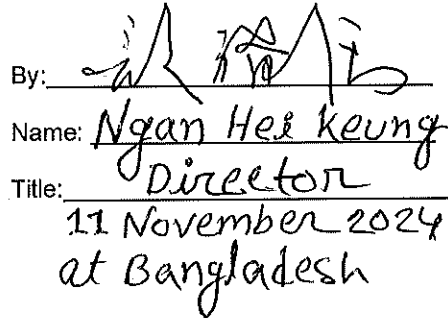 By:
Name: Ngan Hei Keung
Title: Director
11 November 2024
at Bangladesh